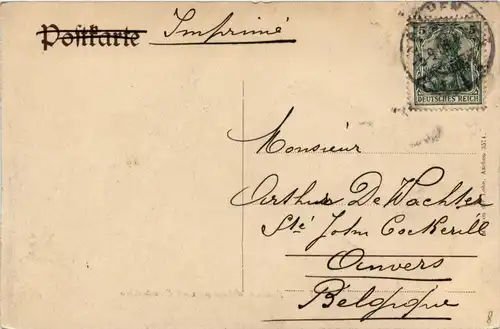 Postkarte Imprimé
5 5
DEUTSCHES REICH
Monsieur
Arthur De Wachter
Sté John Cockerill
Anvers
Belgique